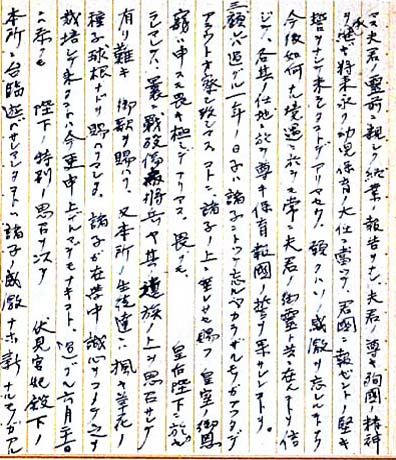 夫君ノ霊前ニ親シク終業ノ報告ヲナシ、夫君ノ尊キ殉國ノ精神
ヲ継ギ将来永ク幼児保育ノ大任ニ當ツテ、君國ニ報ゼントノ堅キ
誓ヲナシテ来ラレタコトデアリマセウ。願クハソノ感激ヲ忘レルコトナク
今後如何ナル境遇ニ於テモ常ニ夫君ノ御霊ト共ニ在ルコトヲ信
ジテ、各其ノ任地ニ於テ尊キ保育報國ノ誓ヲ果サレンコトヲ。
三願ヘバ過グル一年ノ日子ハ諸子ニトツテ忘ルベカラザルモノガアツタデ
アラウト察シマスコトニ、諸子ノ上ニ垂レサセ賜フ 皇室ノ御恩
寵ハ申スモ畏キ極ミデアリマス。畏クモ 皇后陛下ニ於カ
セラレマシテハ、曩ニ戦没傷痍将兵ヤ其ノ遺族ノ上ヲ思召サレテ
有リ難キ 御歌ヲ賜ハリ、又本所ノ生徒達ニ楓ヤ草花ノ
種子球根ナドヲ賜ハリマシタ。諸子ガ在学中誠心ヲコメテ之ヲ
栽培シテ来タコトハ今更申上グルマデモナキコト。過グル六月二十日
ニハ 陛下ノ特別ノ思召ヲ以テ 伏見宮妃殿下ノ
本所ニ台臨遊バサレマシタコトハ諸子ノ感激ナホ新ナルモノガアル